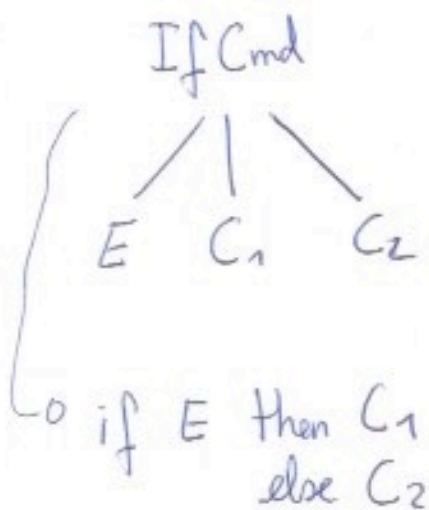 If Cmd
E C₁ C₂
if E then C₁
else C₂